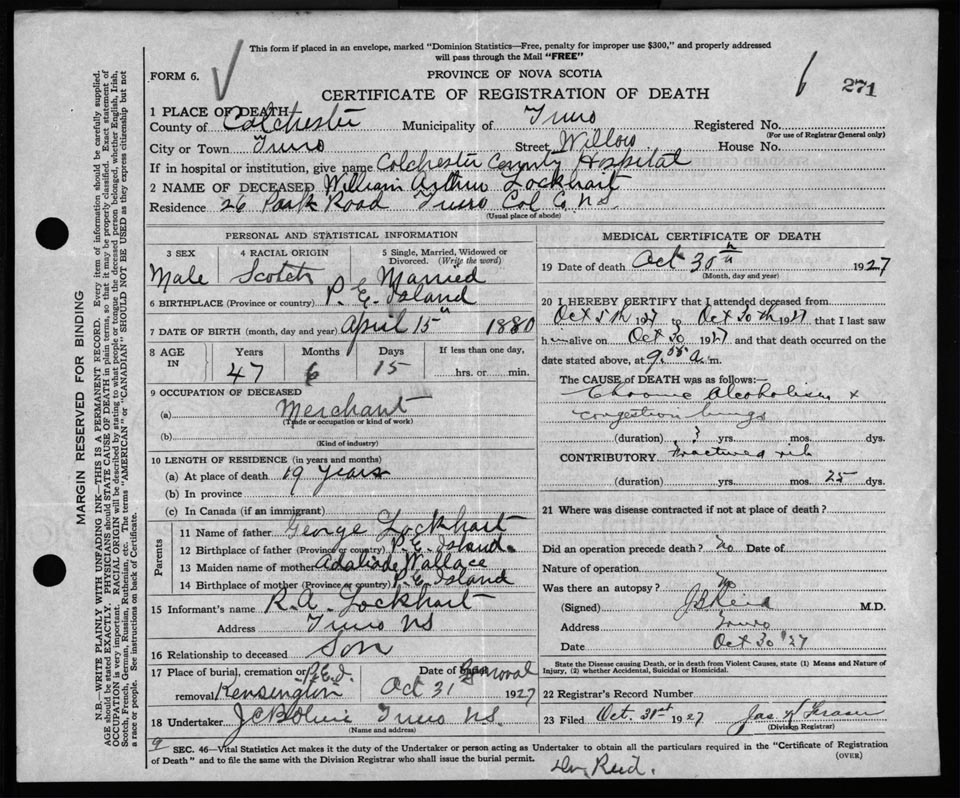 This form if placed in an envelope, marked "Dominion Statistics—Free, penalty for improper use $300," and properly addressed
will pass through the Mail "FREE"
FORM 6.
PROVINCE OF NOVA SCOTIA
CERTIFICATE OF REGISTRATION OF DEATH
6 271
1 PLACE OF DEATH
County of Colchester Municipality of Truro Registered No.
(For use of Registrar General only)
City or Town Truro Street Willow House No.
If in hospital or institution, give name Colchester County Hospital
2 NAME OF DECEASED William Arthur Lockhart
Residence 26 Park Road Truro Col Co. N.S.
(Usual place of abode)
PERSONAL AND STATISTICAL INFORMATION
3 SEX 4 RACIAL ORIGIN 5 Single, Married, Widowed or
Divorced. (Write the word)
Male Scotch Married
6 BIRTHPLACE (Province or country) P. E. Island
7 DATE OF BIRTH (month, day and year) April 15th 1880
8 AGE IN Years Months Days If less than one day,
47 6 15 hrs. or min.
9 OCCUPATION OF DECEASED
(a) Merchant
(Trade or occupation or kind of work)
(b)
(Kind of industry)
10 LENGTH OF RESIDENCE (in years and months)
(a) At place of death 19 years
(b) In province
(c) In Canada (if an immigrant)
Parents
11 Name of father George Lockhart
12 Birthplace of father (Province or country) P. E. Island.
13 Maiden name of mother Adaliade Wallace
14 Birthplace of mother (Province or country) P. E. Island
15 Informant's name R. A. Lockhart
Address Truro NS
16 Relationship to deceased Son
17 Place of burial, cremation or P.E.I. Date of burial Removal
removal Kensington Oct 31 1927
18 Undertaker Truro NS.
(Name and address)
MEDICAL CERTIFICATE OF DEATH
19 Date of death Oct 30th 1927
(Month, day and year)
20 I HEREBY CERTIFY that I attended deceased from
Oct 5th 1927 to Oct 30th 1927 that I last saw
him alive on Oct 30 1927 and that death occurred on the
date stated above, at 9.05 a. m.
The CAUSE of DEATH was as follows:—
Chronic Alcoholism x
Congestion lungs
(duration) ? yrs. mos. dys.
CONTRIBUTORY Fractured rib
(duration) yrs. mos. 25 dys.
21 Where was disease contracted if not at place of death?
Did an operation precede death? No Date of
Nature of operation
Was there an autopsy? No
(Signed) J B Reid M.D.
Address Truro
Date Oct 30 '27
State the Disease causing Death, or in death from Violent Causes, state (1) Means and Nature of
Injury, (2) whether Accidental, Suicidal or Homicidal.
22 Registrar's Record Number
23 Filed Oct. 31st 1927 Jas. Fraser
(Division Registrar)
9 SEC. 46—Vital Statistics Act makes it the duty of the Undertaker or person acting as Undertaker to obtain all the particulars required in the "Certificate of Registration
of Death" and to file the same with the Division Registrar who shall issue the burial permit.
(OVER)
Dr Reid.
MARGIN RESERVED FOR BINDING
N.B.—WRITE PLAINLY WITH UNFADING INK—THIS IS A PERMANENT RECORD. Every item of information should be carefully supplied.
AGE should be stated EXACTLY. PHYSICIANS should STATE CAUSE OF DEATH in plain terms, so that it may be properly classified. Exact statement of
OCCUPATION is very important. RACIAL ORIGIN will be described by stating to what people or tongue the deceased person belonged, whether English, Irish,
Scotch, French, German, Russian, Ruthenian, etc. The terms "AMERICAN" or "CANADIAN" SHOULD NOT BE USED as they express citizenship but not
a race or people. See instructions on back of Certificate.